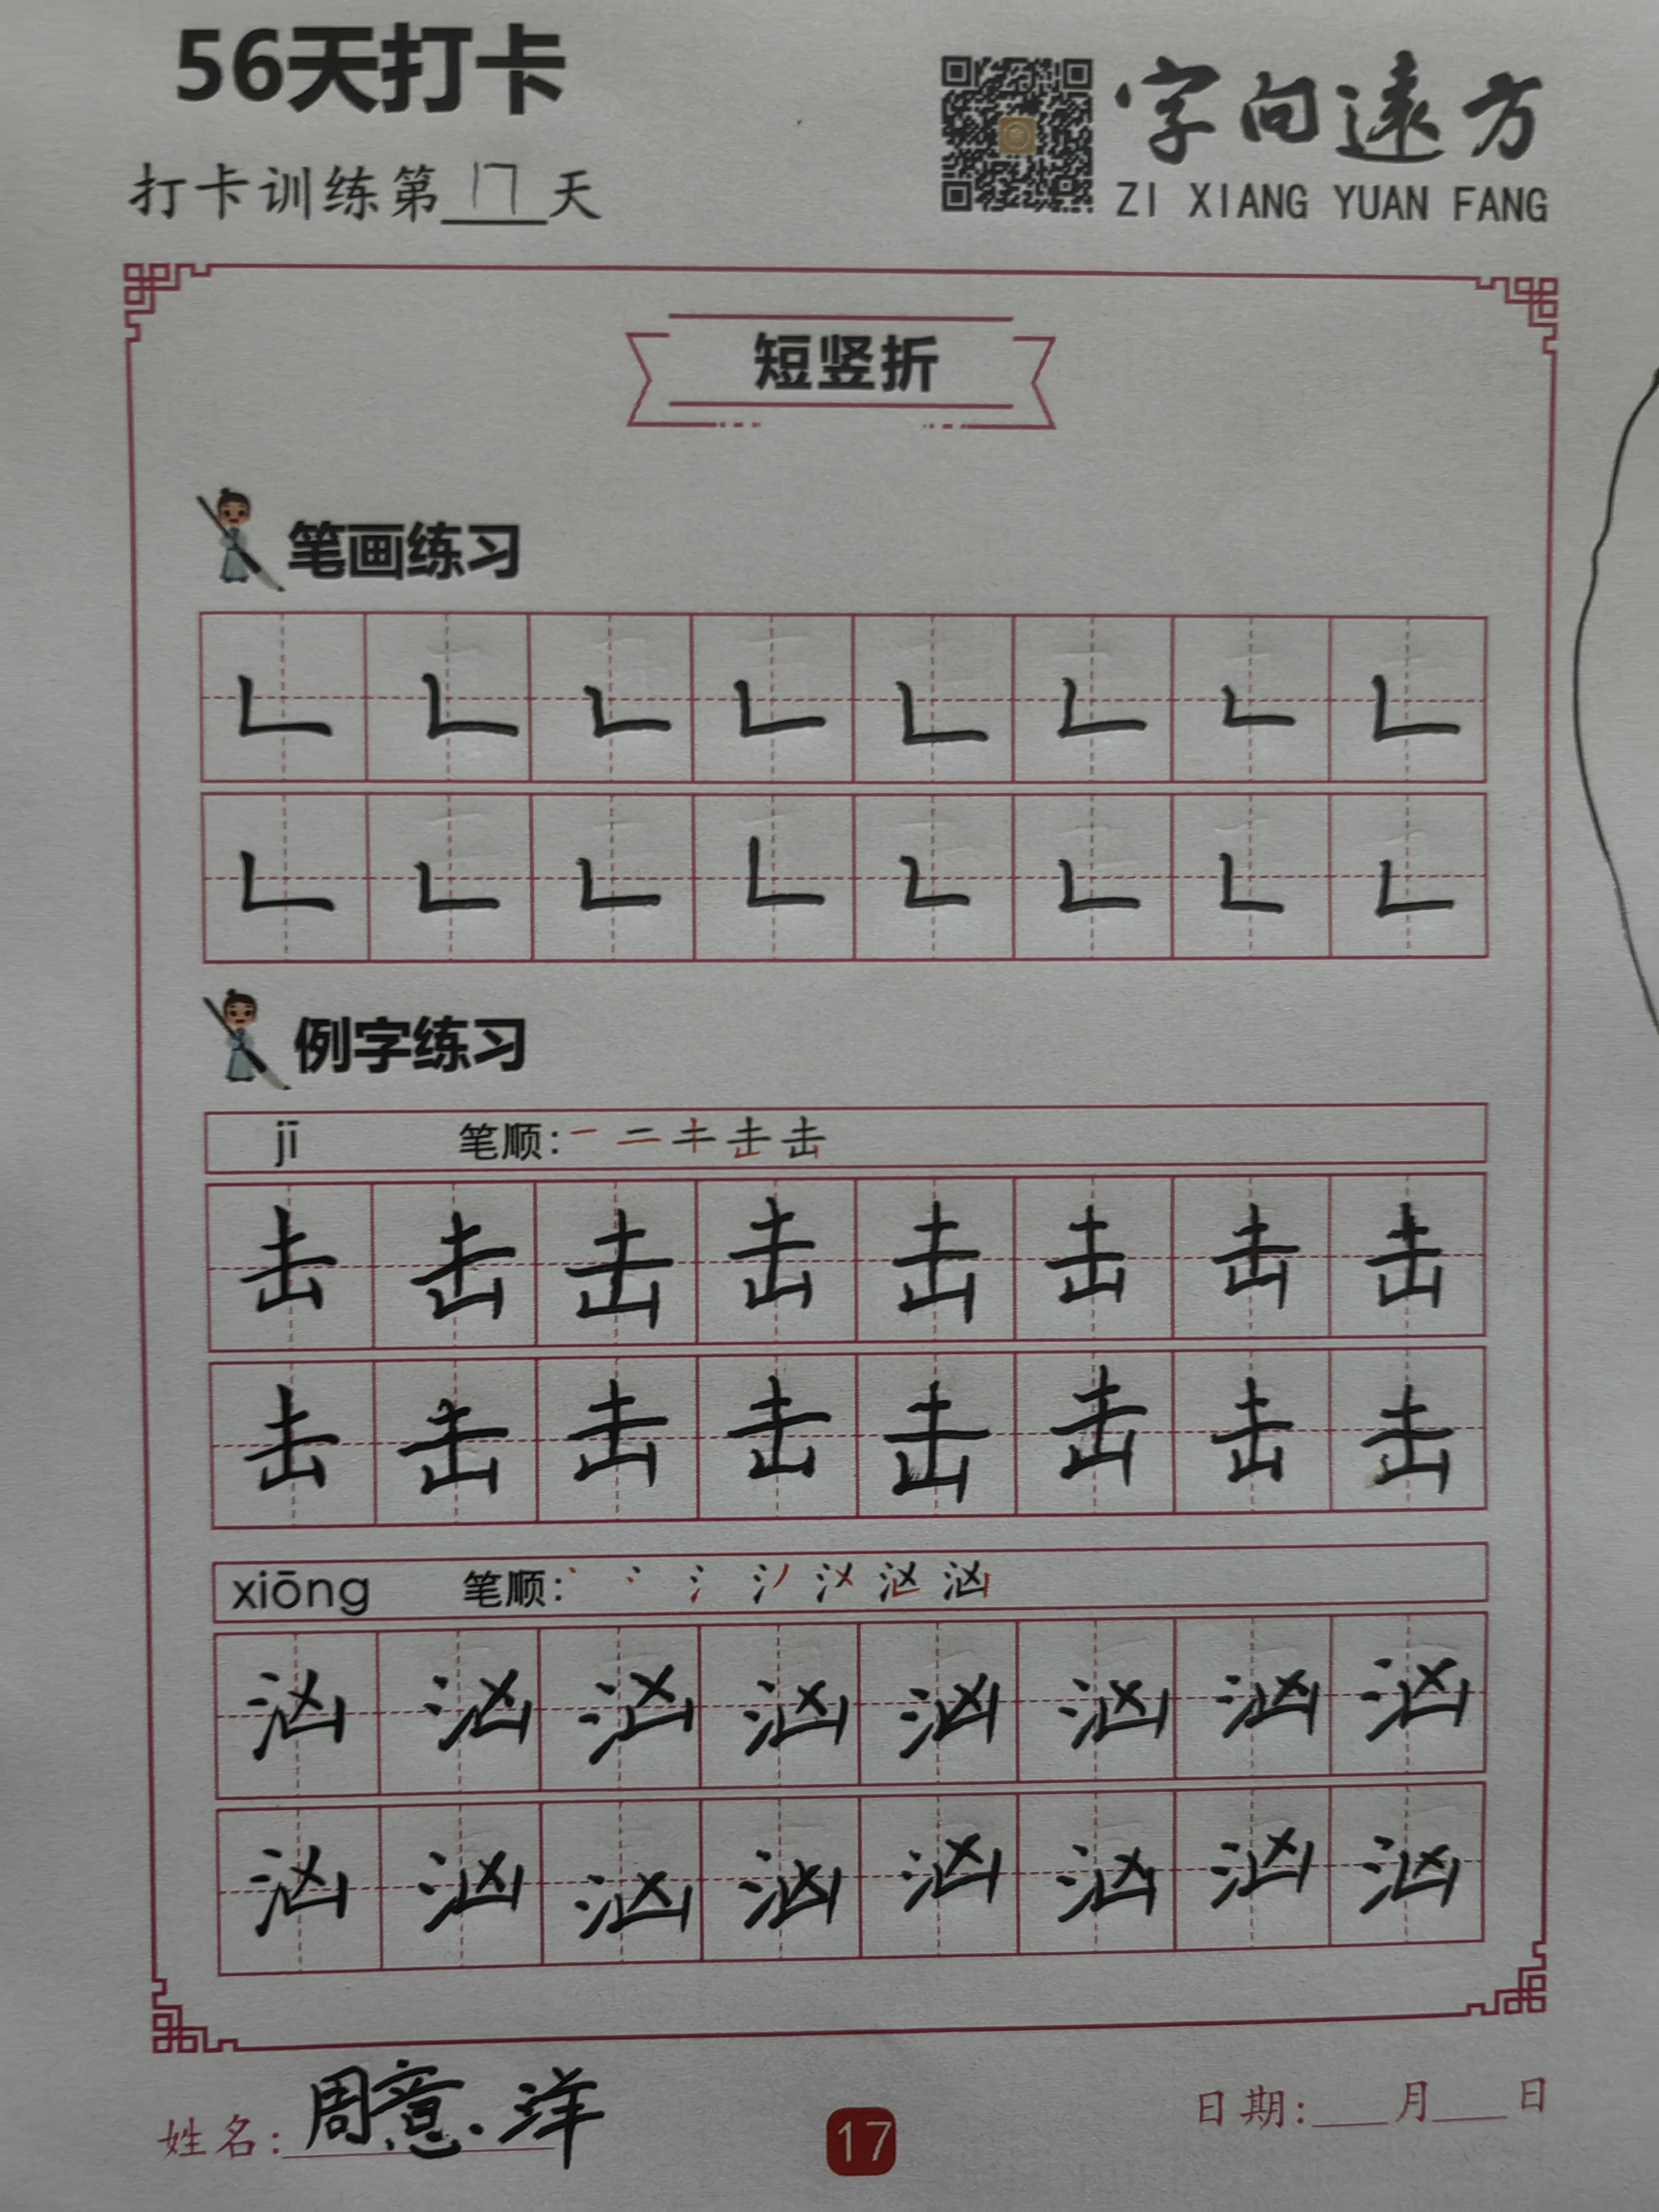 56天打卡
字向遠方
打卡训练第17天
ZI XIANG YUAN FANG
短竖折
笔画练习
𠃊 𠃊 𠃊 𠃊 𠃊 𠃊 𠃊 𠃊
𠃊 𠃊 𠃊 𠃊 𠃊 𠃊 𠃊 𠃊
例字练习
jī 笔顺:
击 击 击 击 击 击 击 击
击 击 击 击 击 击 击 击
xiōng 笔顺:
汹 汹 汹 汹 汹 汹 汹 汹
汹 汹 汹 汹 汹 汹 汹 汹
姓名:周意洋
17
日期:___月___日